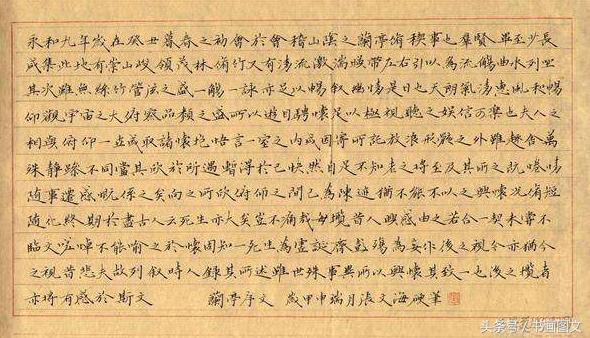 永和九年歲在癸丑暮春之初會於會稽山陰之蘭亭脩稧事也羣賢畢至少長
咸集此地有崇山峻領茂林脩竹又有清流激湍暎帶左右引以為流觴曲水列坐
其次雖無絲竹管弦之盛一觴一詠亦足以暢叙幽情是日也天朗氣清惠風和暢
仰觀宇宙之大俯察品類之盛所以遊目騁懷足以極視聽之娱信可樂也夫人之
相與俯仰一世或取諸懷抱悟言一室之內或因寄所託放浪形骸之外雖趣舍萬
殊靜躁不同當其欣於所遇暫得於己快然自足不知老之將至及其所之既惓情
隨事遷感慨係之矣向之所欣俯仰之間已為陳迹猶不能不以之興懷況脩短
隨化終期於盡古人云死生亦大矣豈不痛哉每攬昔人興感由之若合一契未嘗不
臨文嗟悼不能喻之於懷固知一死生為虛誕齊彭殤為妄作後之視今亦猶今
之視昔悲夫故列叙時人錄其所述雖世殊事異所以興懷其致一也後之攬者
亦將有感於斯文 蘭亭序文 歲甲申端月張文海硬筆
头条号/书画图文